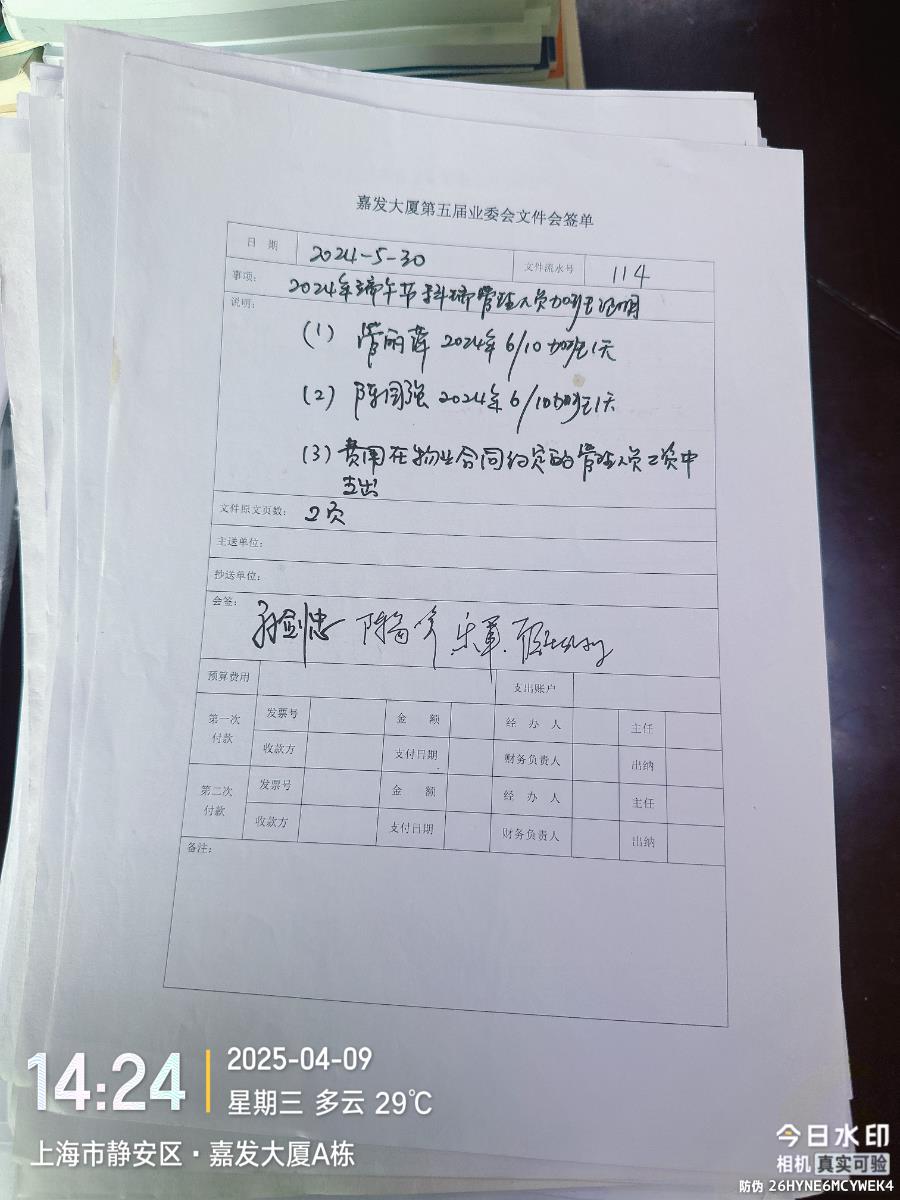 嘉发大厦第五届业委会文件会签单
日 期 2024-5-30 文件流水号 114
事项: 2024年端午节科瑞管理人员加班证明
说明:
(1) 管丽萍 2024年6/10加班1天
(2) 陈国强 2024年6/10加班1天
(3) 费用在物业合同约定的管理人员工资中
支出
文件原文页数: 2页
主送单位:
抄送单位:
会签: 孙剑忠
预算费用 支出账户
第一次付款 发票号 金 额 经 办 人 主任
收款方 支付日期 财务负责人 出纳
第二次付款 发票号 金 额 经 办 人 主任
收款方 支付日期 财务负责人 出纳
备注:
14:24 2025-04-09
星期三 多云 29℃
上海市静安区·嘉发大厦A栋
今日水印
相机 真实可验
防伪 26HYNE6MCYWEK4